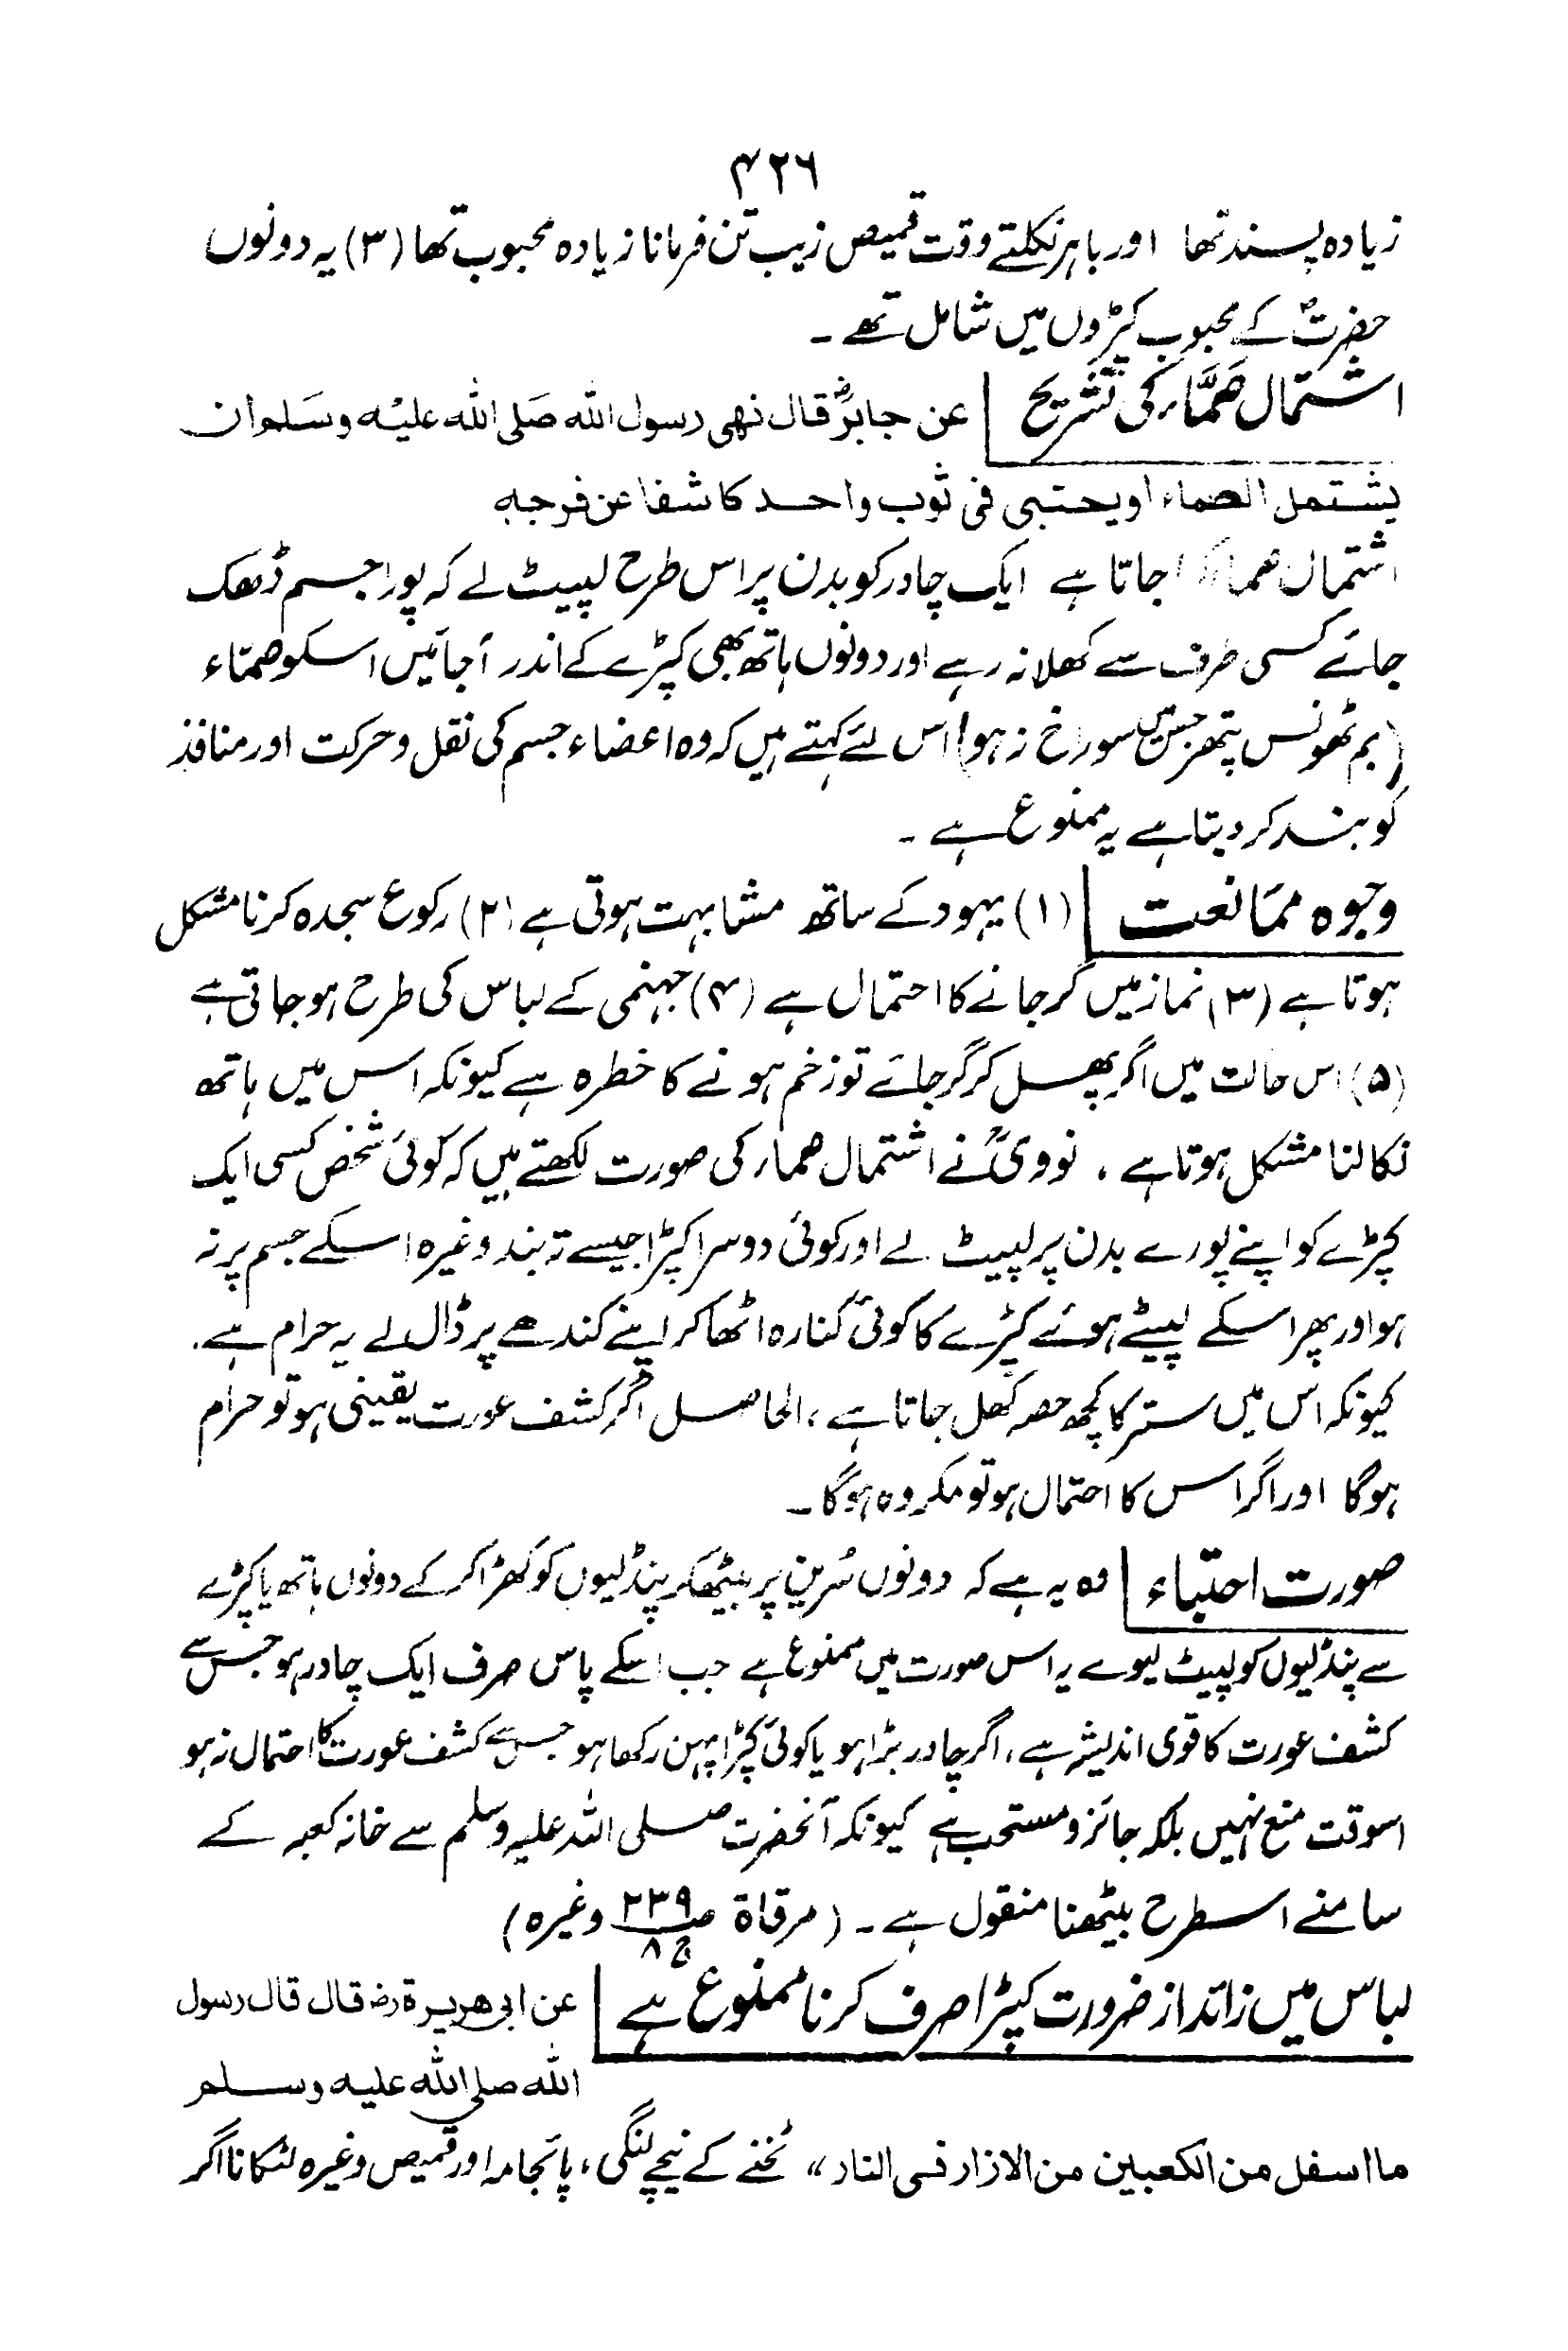 ۴۲۶
زیادہ پسند تھا اور باہر نکلتے وقت قمیص زیب تن فرمانا زیادہ محبوب تھا (۳) یہ دونوں
حضرتؐ کے محبوب کپڑوں میں شامل تھے ۔
اشتمال صَمَّاء کی تشریح عن جابرؓ قال نهى رسول الله صَلى الله عليْه وسَلم ان
يشتمل الصماء او يحتبى فى ثوب واحد كاشفا عن فرجه
اشتمال صماء جاتا ہے ایک چادر کو بدن پر اس طرح لپیٹ لے کہ پورا جسم ڈھک
جائے کسی طرف سے کھلا نہ رہے اور دونوں ہاتھ بھی کپڑے کے اندر آجائیں اسکو صمّاء
(بم ٹھونس پتھر جسمیں سوراخ نہ ہو) اس لئے کہتے ہیں کہ وہ اعضاء جسم کی نقل و حرکت اور منافذ
کو بند کر دیتا ہے یہ ممنوع ہے ۔
وجوہ ممَانعت (۱) یہود کے ساتھ مشابہت ہوتی ہے (۲) رکوع سجدہ کرنا مشکل
ہوتا ہے (۳) نماز میں گر جانے کا احتمال ہے (۴) جہنمی کے لباس کی طرح ہو جاتی ہے
(۵) اس حالت میں اگر پھسل کر گر جائے تو زخم ہونے کا خطرہ ہے کیونکہ اس میں ہاتھ
نکالنا مشکل ہوتا ہے ، نوویؒ نے اشتمال صماء کی صورت لکھتے ہیں کہ کوئی شخص کسی ایک
کپڑے کو اپنے پورے بدن پر لپیٹ لے اور کوئی دوسرا کپڑا جیسے تہبند وغیرہ اسکے جسم پر نہ
ہو اور پھر اسکے لپیٹے ہوئے کپڑے کا کوئی کنارہ اٹھا کر اپنے کندھے پر ڈال لے یہ حرام ہے .
کیونکہ اس میں ستر کا کچھ حصہ کھل جاتا ہے ، الحاصل اگر کشف عورت یقینی ہو تو حرام
ہوگا اور اگر اس کا احتمال ہو تو مکروہ ہوگا ۔
صورت احتباء وہ یہ ہے کہ دونوں سُرین پر بیٹھکر پنڈلیوں کو کھڑا کر کے دونوں ہاتھ یا کپڑے
سے پنڈلیوں کو لپیٹ لیوے یہ اس صورت میں ممنوع ہے جب اسکے پاس صرف ایک چادر ہو جس سے
کشف عورت کا قوی اندیشہ ہے ، اگر چادر بڑا ہو یا کوئی کپڑا پہن رکھا ہو جس سے کشف عورت کا احتمال نہ ہو
اسوقت منع نہیں بلکہ جائز و مستحب ہے کیونکہ آنحضرت صلی اللہ علیہ وسلم سے خانہ کعبہ کے
سامنے اسطرح بیٹھنا منقول ہے ۔ (مرقاة صـ ۲۳۹ ج ۸ وغیرہ)
لباس میں زائد از ضرورت کپڑا صرف کرنا ممنوع ہے عن ابی هريرة رض قال قال رسول
الله صلى الله عليه وسلم
ما اسفل من الكعبين من الازار فى النار ،، ٹخنے کے نیچے لنگی ، پائجامہ اور قمیص وغیرہ لٹکانا اگر